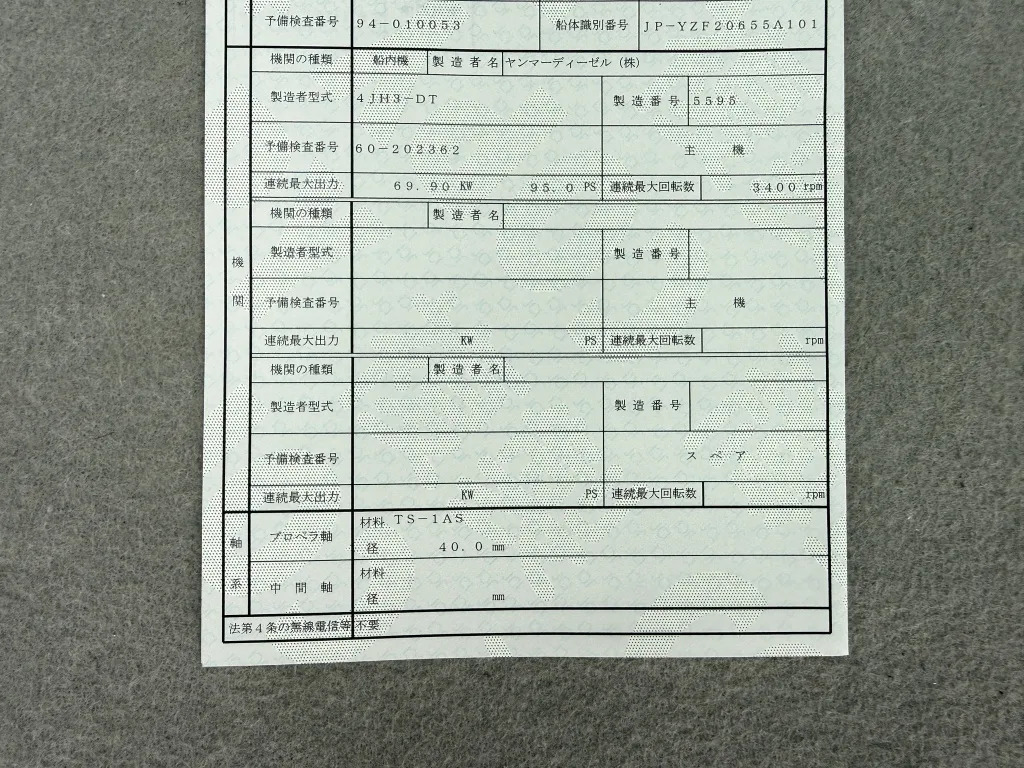 予備検査番号 94-010053 船体識別番号 JP-YZF20655A101
機関の種類 船内機 製造者名 ヤンマーディーゼル（株）
製造者型式 4JH3-DT 製造番号 5595
予備検査番号 60-202362 主機
連続最大出力 69.90 KW 95.0 PS 連続最大回転数 3400 rpm
機関の種類 製造者名
製造者型式 製造番号
機関
予備検査番号 主機
連続最大出力 KW PS 連続最大回転数 rpm
機関の種類 製造者名
製造者型式 製造番号
予備検査番号 スペア
連続最大出力 KW PS 連続最大回転数 rpm
軸系
プロペラ軸 材料 TS-1AS
径 40.0 mm
中間軸 材料
径 mm
法第4条の無線電信等 不要